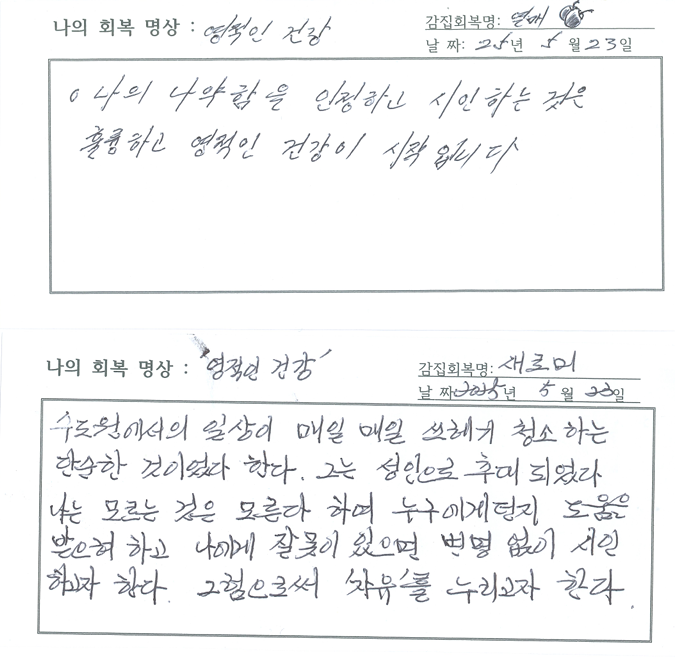 나의 회복 명상 : 영적인 건강
감집회복명: 열매
날 짜: 25년 5월 23일
o 나의 나약함을 인정하고 시인하는 것은
훌륭하고 영적인 건강이 시작 입니다
나의 회복 명상 : '영적인 건강'
감집회복명: 새로미
날 짜 2025년 5월 23일
수도원에서의 일상이 매일 매일 쓰레기 청소하는
단순한 것이었다 한다. 그는 성인으로 후대 되었다
나는 모르는 것은 모른다 하며 누구에게던지 도움을
받으려 하고 나에게 잘못이 있으면 변명 없이 시인
하고자 한다. 그럼으로써 자유를 누리고자 한다.